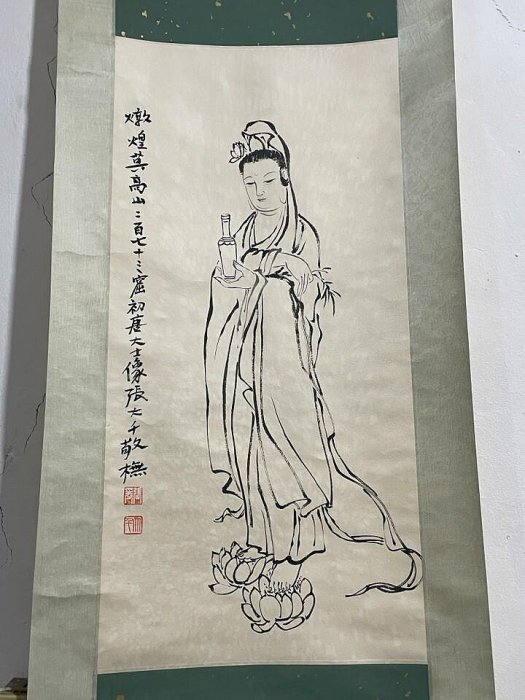 燉煌莫高山二百七十三窟初唐大士像張大千敬橅